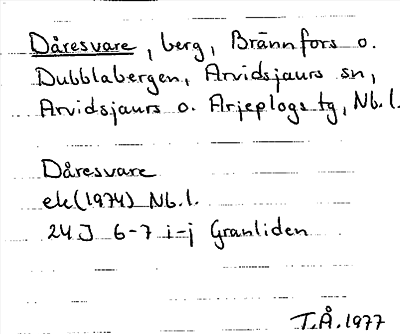 Dåresvare, berg, Brännfors o.
Dubblabergen, Arvidsjaurs sn,
Arvidsjaurs o. Arjeplogs tg, Nb.l.
Dåresvare
ek(1974) Nb.l.
24J 6-7 i-j Granliden
T.Å.1977